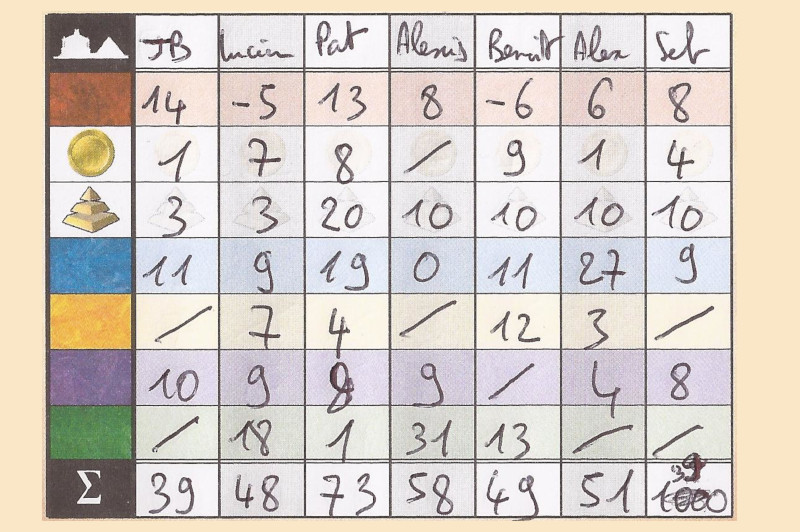 JB Lucien Pat Alexis Benoît Alex Seb
14 -5 13 8 -6 6 8
1 7 8 / 9 1 4
3 3 20 10 10 10 10
11 9 19 0 11 27 9
/ 7 4 / 12 3 /
10 9 8 9 / 4 8
/ 18 1 31 13 / /
Σ 39 48 73 58 49 51 39 1000